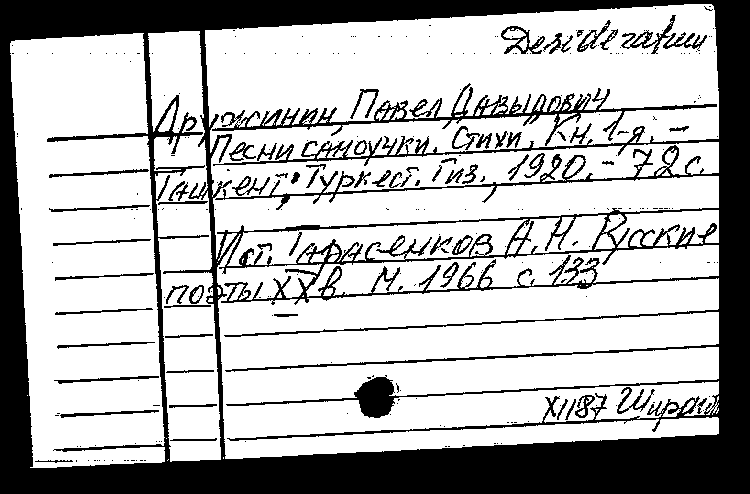 Desideratum
Дружинин, Павел Давыдович
Песни самоучки. Стихи. Кн. 1-я. –
Ташкент: Туркест. Гиз., 1920. – 72 с.
Ист. Тарасенков А.Н. Русские
поэты XX в. М. 1966 с. 133
XI 187